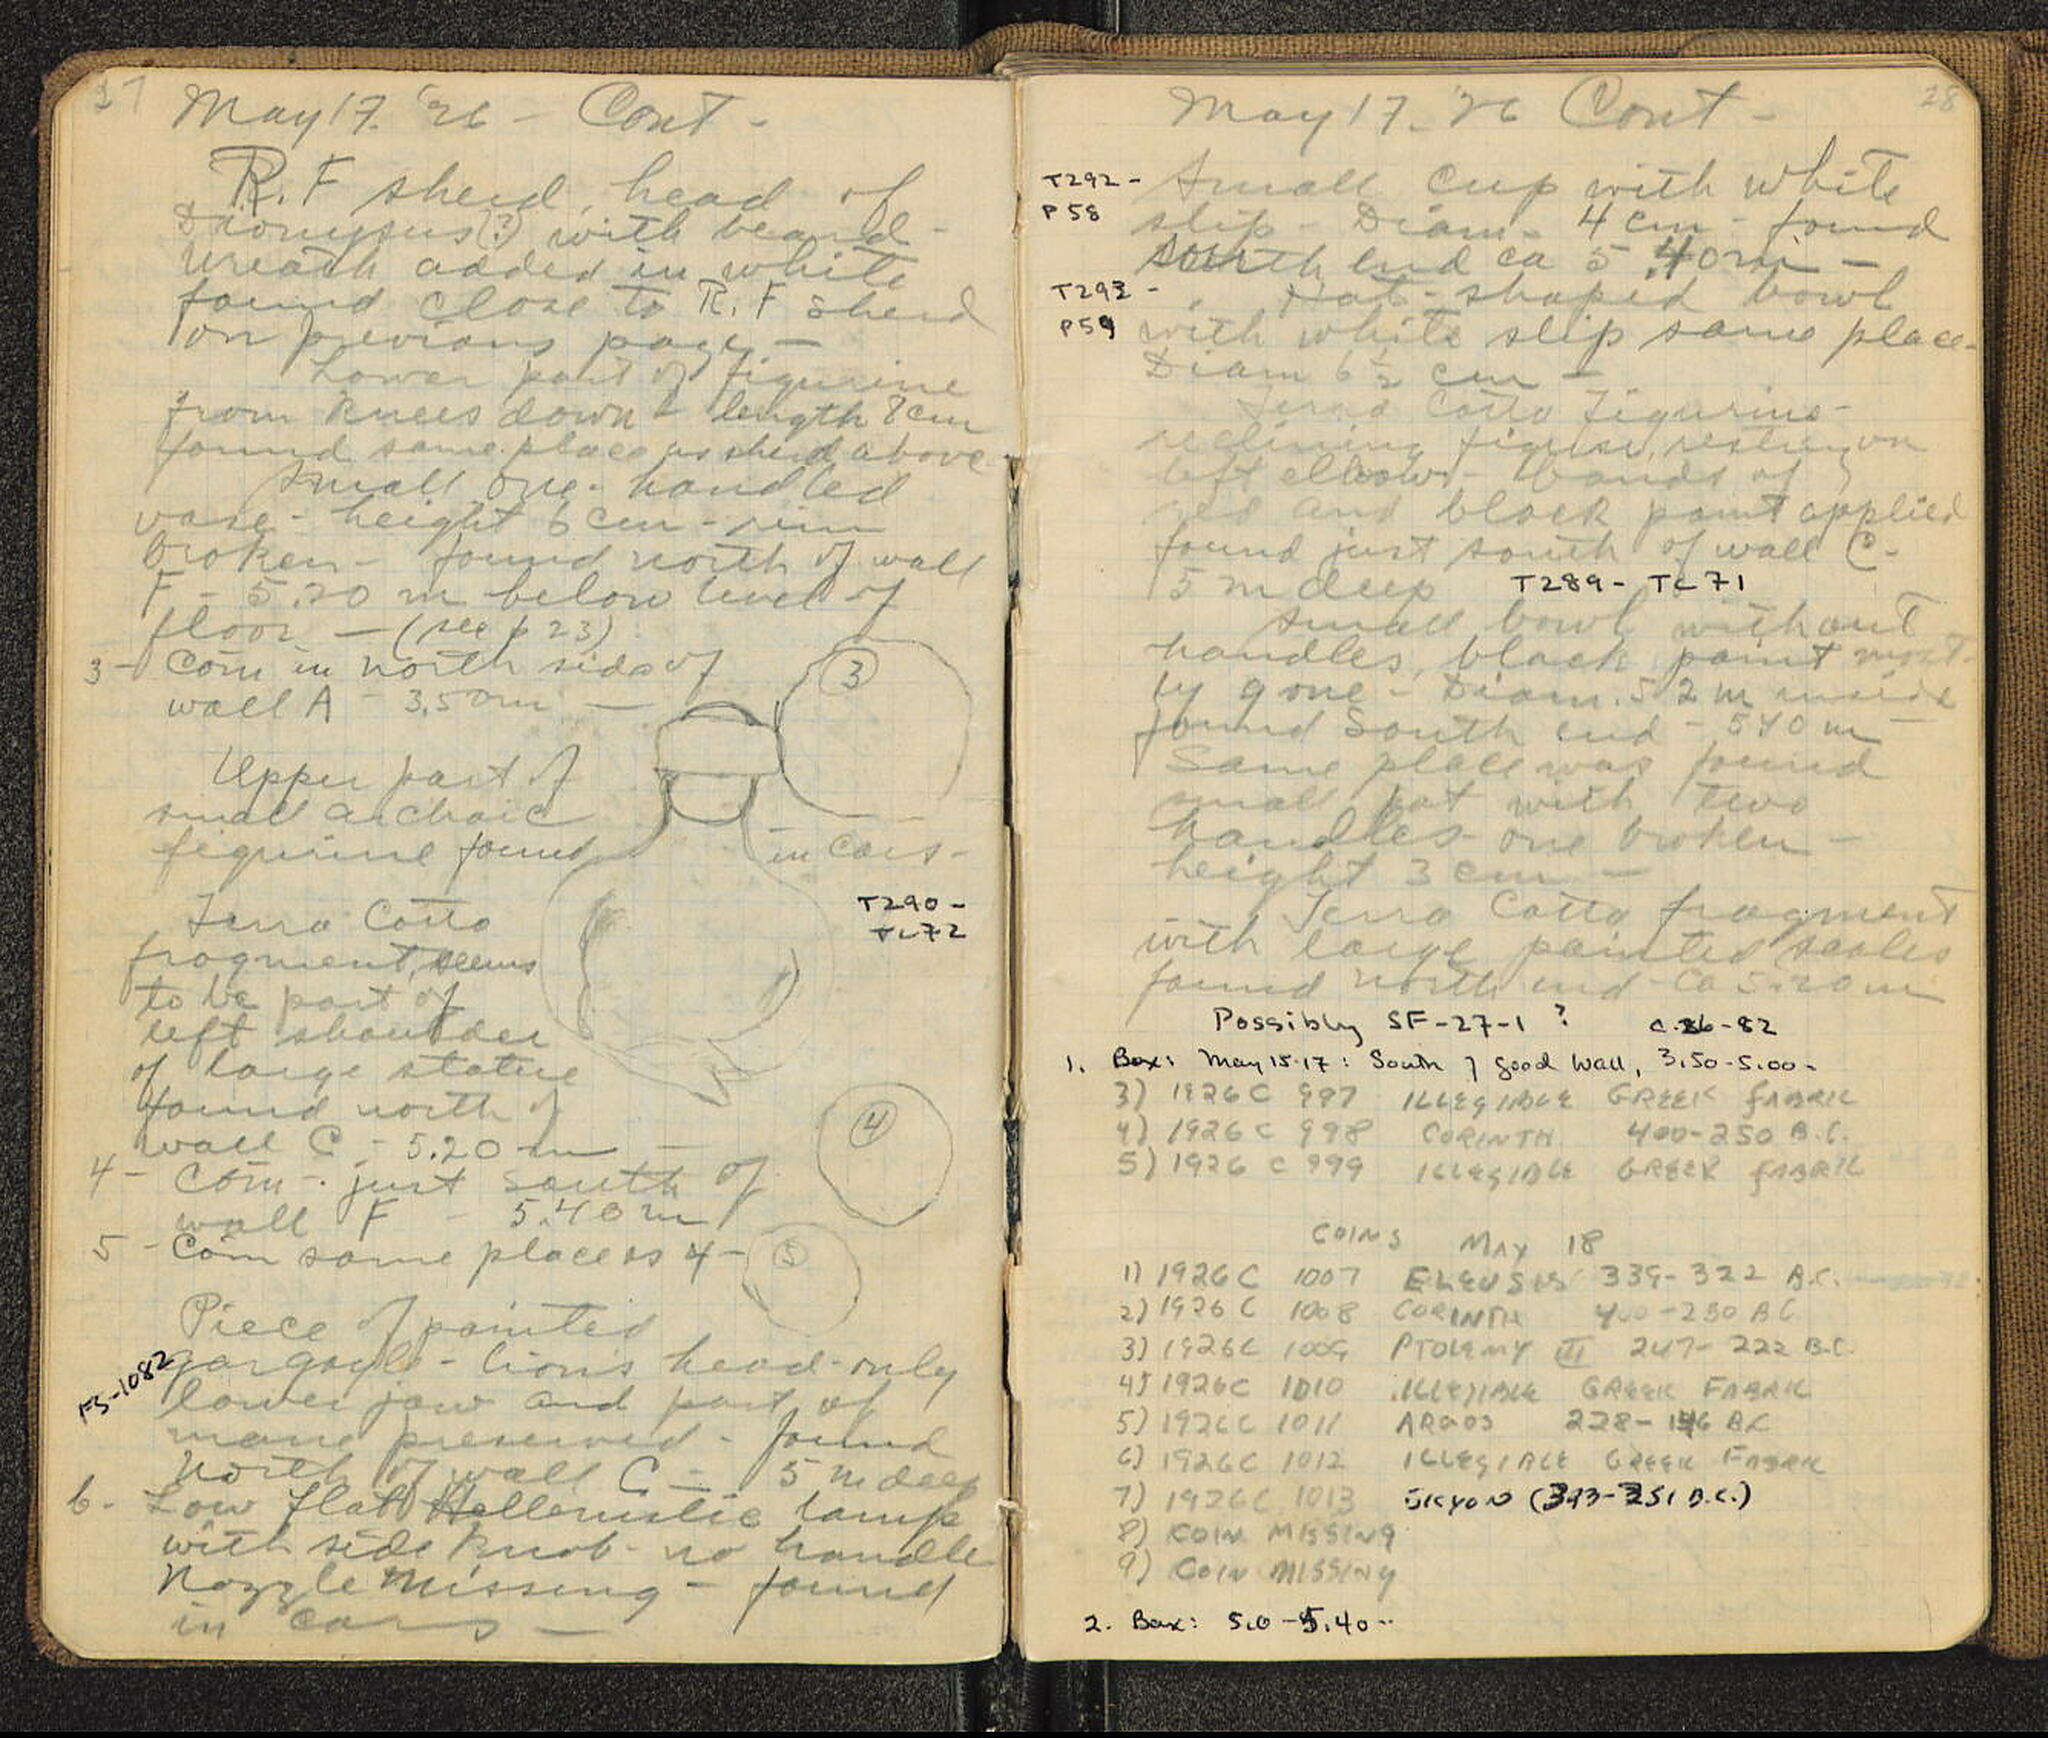 27
May 17. '26 - Cont -
R.F sherd, head of
Dionysus(?) with beard -
wreath added in white
found close to R.F sherd
on previous page -
Lower part of figurine
from knees down - length 8cm
found same place as sherd above
Small one-handled
vase - height 6 cm - rim
broken - found north of wall
F - 5.20 m below level of
floor - (see p 23)
3 - Coin in north side of
wall A - 3.50m -
3
Upper part of
small archaic
figurine found in cars -
T290 -
TC72
Terra Cotta
fragment, seems
to be part of
left shoulder
of large statue
found north of
wall C - 5.20 m -
4 - Coin - just south of
wall F - 5.40 m
4
5 - Coin same place as 4 -
5
Piece of painted
FS-1082
gargoyle - lion's head - only
lower jaw and part of
mane preserved - found
North of wall C - 5 m deep
6 - Low flat Hellenistic lamp
with side knob - no handle
Nozzle Missing - found
in cars -
28
May 17. '26 Cont -
T292 -
P58
Small cup with white
slip - Diam - 4 cm - found
south end ca 5.40m -
T293 -
P59
Hat-shaped bowl
with white slip same place -
Diam 6½ cm -
Terra Cotta Figurine -
reclining figure, resting on
left elbow - bands of
red and black paint applied
found just south of wall C -
5 m deep T289 - TC71
Small bowl without
handles, black paint most-
ly gone - Diam. 5.2 m inside
found South end - 5.40 m -
Same place was found
small pot with two
handles - one broken -
height 3 cm -
Terra Cotta fragment
with large painted scales
found north end - ca 5.20 m
Possibly SF-27-1 ? C.26-82
1. Box: May 15-17: South of good wall, 3.50-5.00 -
3) 1926 C 997 ILLEGIBLE GREEK FABRIC
4) 1926 C 998 CORINTH 400-250 B.C.
5) 1926 C 999 ILLEGIBLE GREEK FABRIC
COINS MAY 18
1) 1926 C 1007 ELEUSIS 339-322 B.C.
2) 1926 C 1008 CORINTH 400-250 BC
3) 1926 C 1009 PTOLEMY III 247-222 B.C.
4) 1926 C 1010 ILLEGIBLE GREEK FABRIC
5) 1926 C 1011 ARGOS 228-146 BC
6) 1926 C 1012 ILLEGIBLE GREEK FABRIC
7) 1926 C 1013 SIKYON (323-251 B.C.)
8) COIN MISSING
9) COIN MISSING
2. Box: 5.0 - 5.40 -